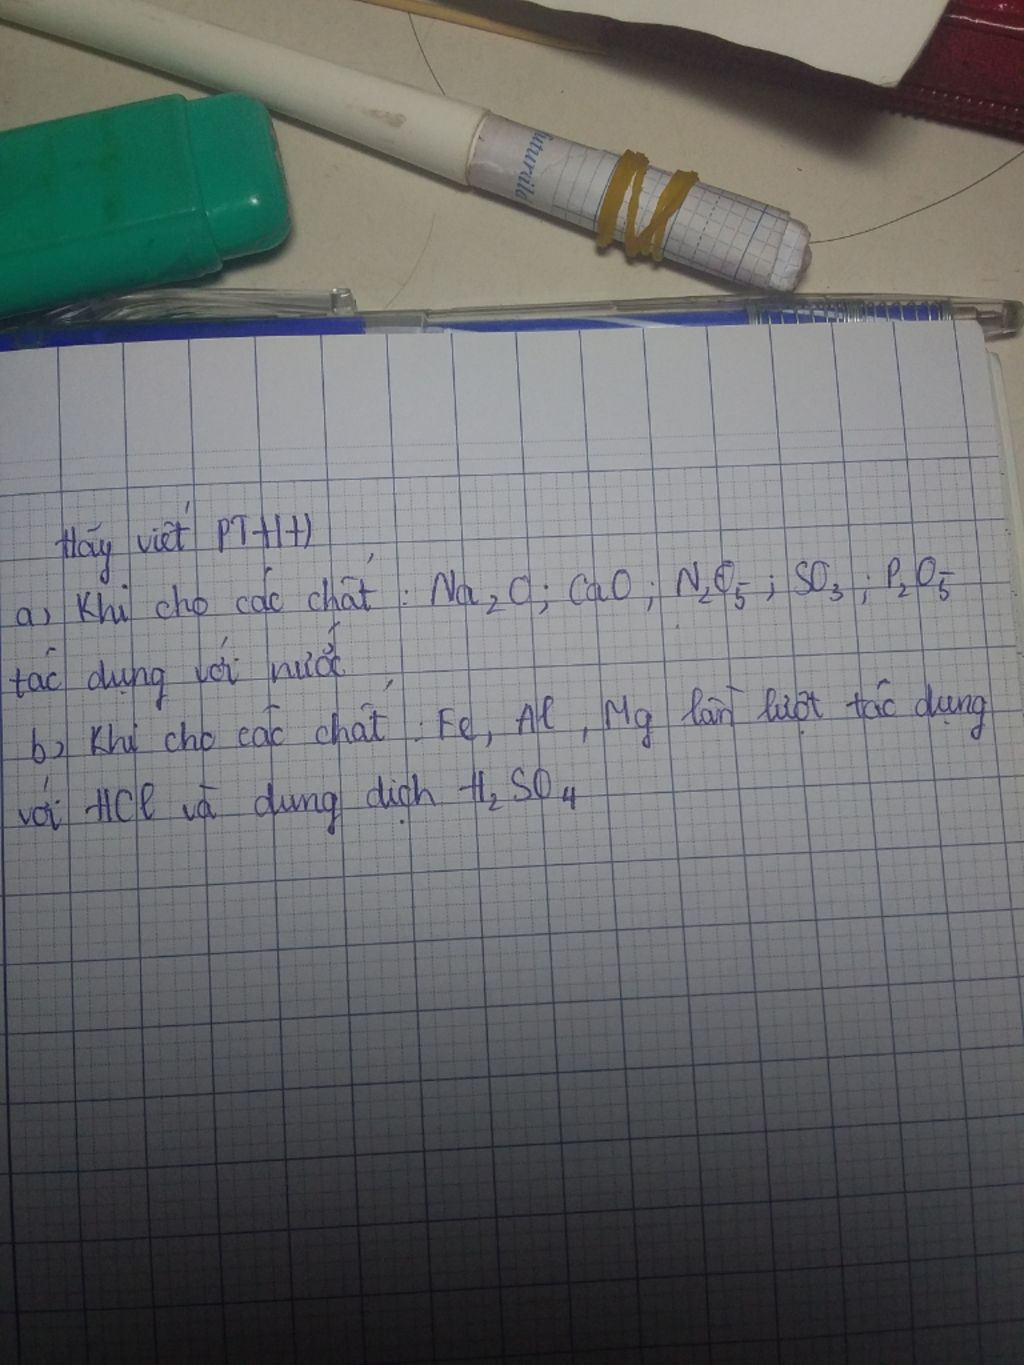 futurale
Hãy viết PTHH
a, Khi cho các chất : Na₂O; CaO; N₂O₅; SO₃; P₂O₅
tác dụng với nước
b, Khi cho các chất : Fe, Al, Mg lần lượt tác dụng
với HCl và dung dịch H₂SO₄